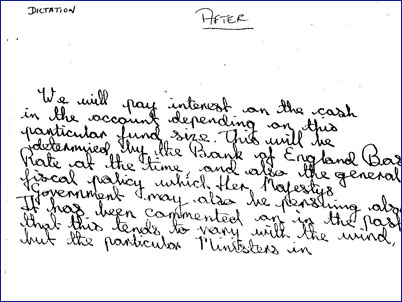 DICTATION
AFTER
We will pay interest on the cash
in the account depending on this
particular fund size. This will be
determied by the Bank of England Bas
Rate at the time and also the general
fiscal policy which Her Majestys
Government may also be persuing also
It has been commented on in the pas
that this tends to vary with the wind,
but the particular Ministers in